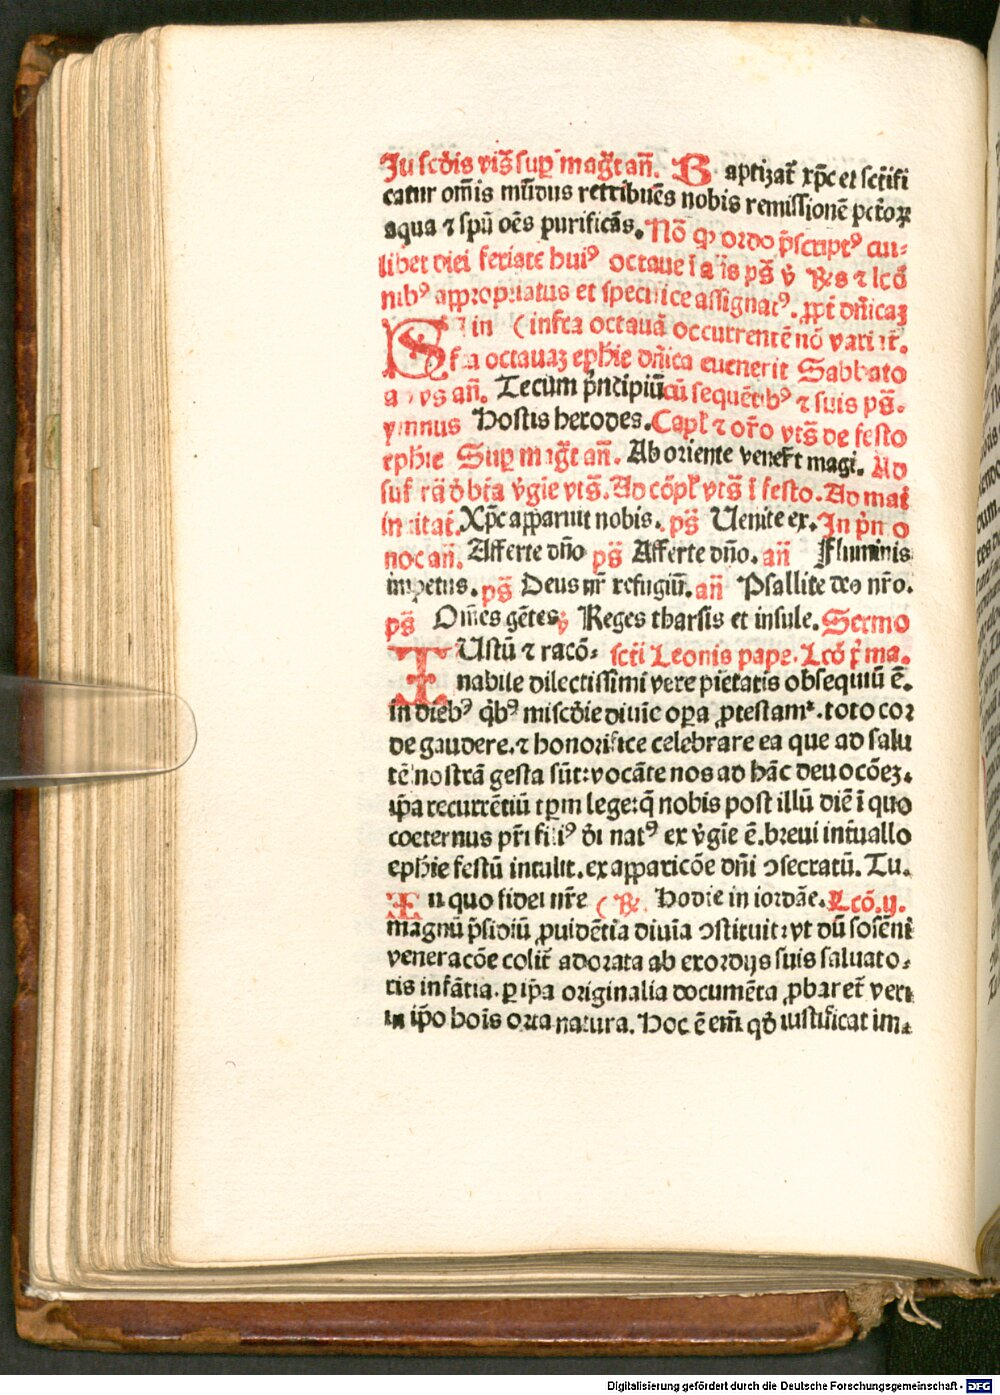 Jn scđis viꝭs̄ suꝑ magr̄t an̄. Baptizat᷑ xp̄c et sct̄ifi
catur om̄is mūdus retribuēs nobis remissionē pctoꝝ
aqua ⁊ spū oēs purificās. Nō ꝙ ordo p̄script⁹ cui⸗
libet diei feriate hui⁹ octaue
nib⁹ appropriatus et specifice assignat⁹. ꝓpt̄ dn̄icaꝫ
Si in (infra octauā occurrentē nō variet᷑.
fra octauaꝫ eph̄ie dn̄ica euenerit Sabbato
ad vs̄ an̄. Tecum pͥncipiū cū sequētib⁹ ⁊ suis ps̄.
ymnus Hostis herodes. Capł ⁊ or̄o vts̄ de festo
eph̄ie Suꝑ magr̄t an̄. Ab oriente vener̄t magi. Ad
suf. vts̄. Ad cōpł vts̄ ī festo. Ad mat̄
inuitat̄. Xp̄c apparuit nobis. ps̄ Uenite ex. Jn pͥn o
noc an̄. Afferte dn̄o ps̄ Afferte dn̄o. an̄ Fluminis
impetus. ps̄ Deus nr̄ refugiū. an̄ Psallite deo nr̄o.
ps̄ Om̄es gētes ꝟ Reges tharsis et insule. Sermo
IUstū ⁊ racō⸗ sct̄i Leonis pape. Lcō pͥma.
nabile dilectissimi vere pietatis obsequiū ē.
in dieb⁹ qͥb⁹ miscđie diuīe oꝑa ꝓtestam᷑. toto cor
de gaudere. ⁊ honorifice celebrare ea que ad salu
tē nostrā gesta sūt: vocāte nos ad hāc deuocōeꝫ.
ip̄a recurrētiū tꝑm lege: q̄ nobis post illū diē ī quo
coeternus pr̄i fili⁹ đi nat⁹ ex v̓gīe ē. breui int̓uallo
eph̄ie festū intulit. ex apparicōe dn̄i ↄsecratū. Tu.
In quo fidei nr̄e (℟. Hodie in iordāe. Lcō. ij.
magnū p̄sidiū ꝓuidētia diuīa ↄstituit: vt dū solēni
veneracōe colit᷑ adorata ab exordijs suis saluato⸗
ris infātia. ꝑ ip̄a originalia documēta ꝓbaret᷑ veri
in ip̄o hoīs orta natura. Hoc ē em̄ qđ iustificat im⸗
Digitalisierung gefördert durch die Deutsche Forschungsgemeinschaft - DFG